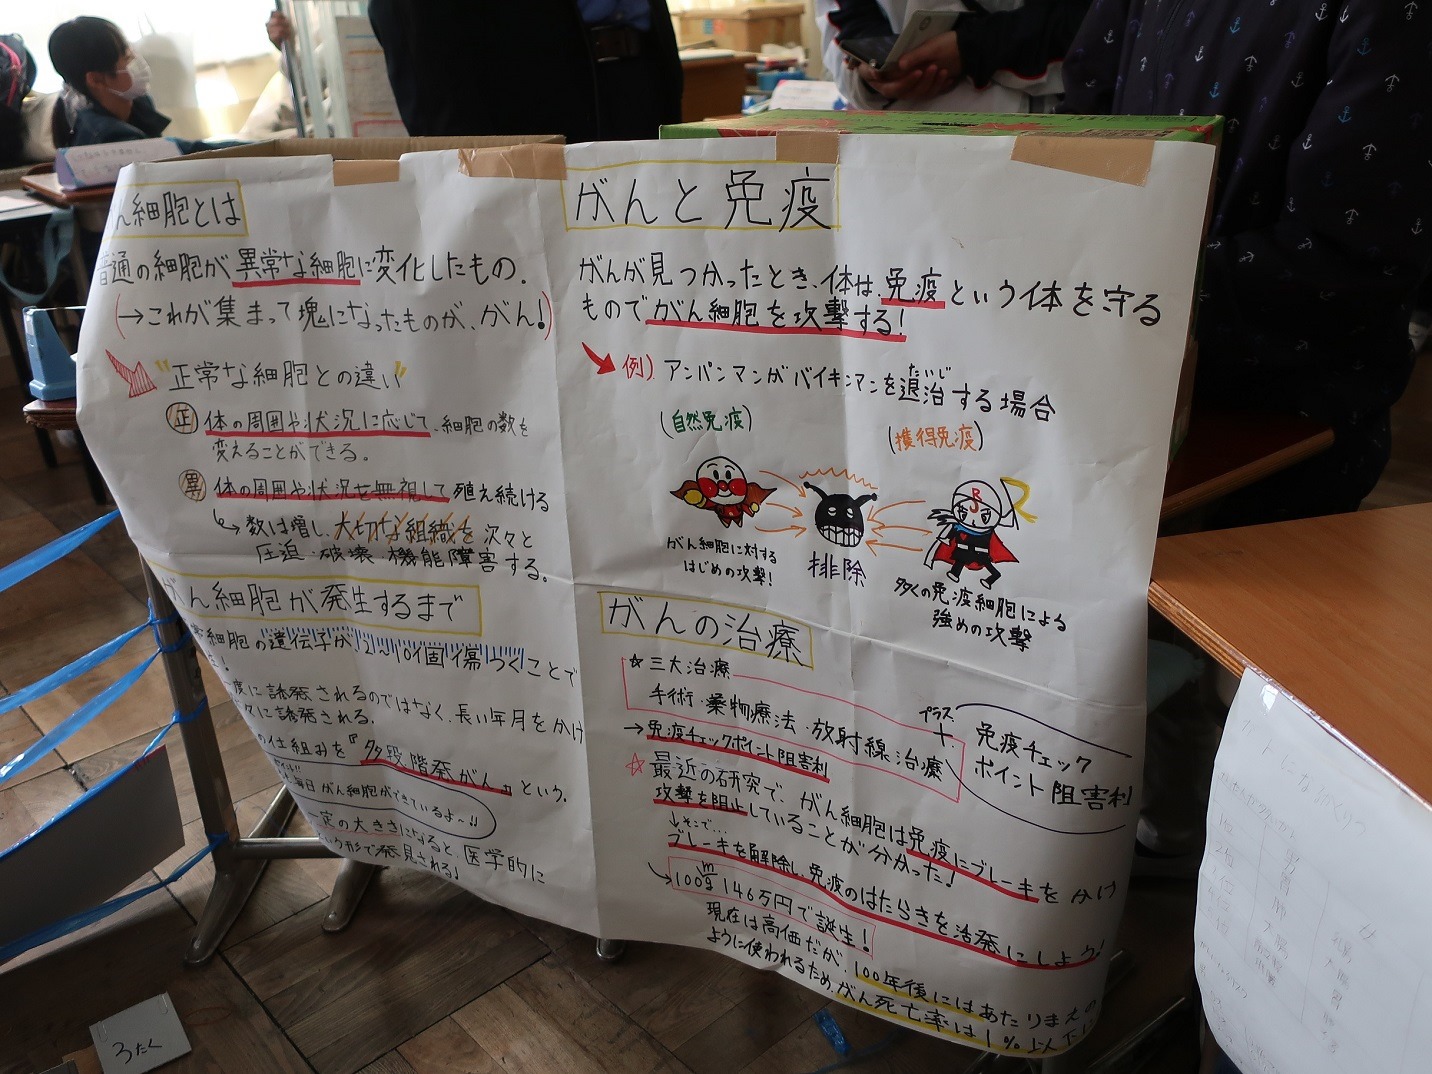 ん細胞とは
普通の細胞が異常な細胞に変化したもの.
(→これが集まって塊になったものが、がん!)
"正常な細胞との違い"
正 体の周囲や状況に応じて、細胞の数を
変えることができる。
異 体の周囲や状況を無視して殖え続ける
↳数は増し、大切な組織を次々と
圧迫・破壊・機能障害する。
がん細胞が発生するまで
常細胞の遺伝子が2〜10個傷つくことで
度に誘発されるのではなく、長い年月をかけ
々に誘発される.
の仕組みを『多段階発がん』という.
毎日がん細胞ができているよ〜!!
一定の大きさになると、医学的に
いう形で発見される」
がんと免疫
がんが見つかったとき、体は、免疫という体を守る
ものでがん細胞を攻撃する!
例) アンパンマンがバイキンマンを退治する場合
たいじ
(自然免疫)
(獲得免疫)
がん細胞に対する
はじめの攻撃!
排除
多くの免疫細胞による
強めの攻撃
がんの治療
☆三大治療
手術・薬物療法・放射線治療
プラス
+
免疫チェック
ポイント阻害利
→免疫チェックポイント阻害利
☆最近の研究で、がん細胞は免疫にブレーキをかけ
攻撃を阻止していることが分かった」
↓そこで…
ブレーキを解除し、免疫のはたらきを活発にしよう!
→100mg 146万円で誕生!
現在は高価だが、100年後にはあたりまえの
ように使われるため、がん死亡率は1%以下に
3たく